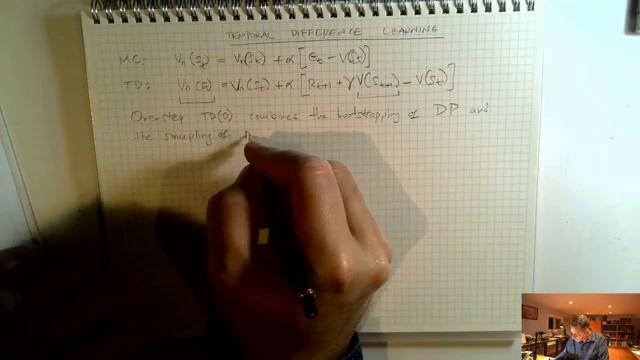 TEMPORAL DIFFERENCE LEARNING
MC: Vn(St) = Vn(St) + α [Gt − V(St)]
TD: Vn(St) = Vn(St) + α [Rt+1 + γV(St+1) − V(St)]
One-step TD(0) combines the bootstrapping of DP and
the sampling of